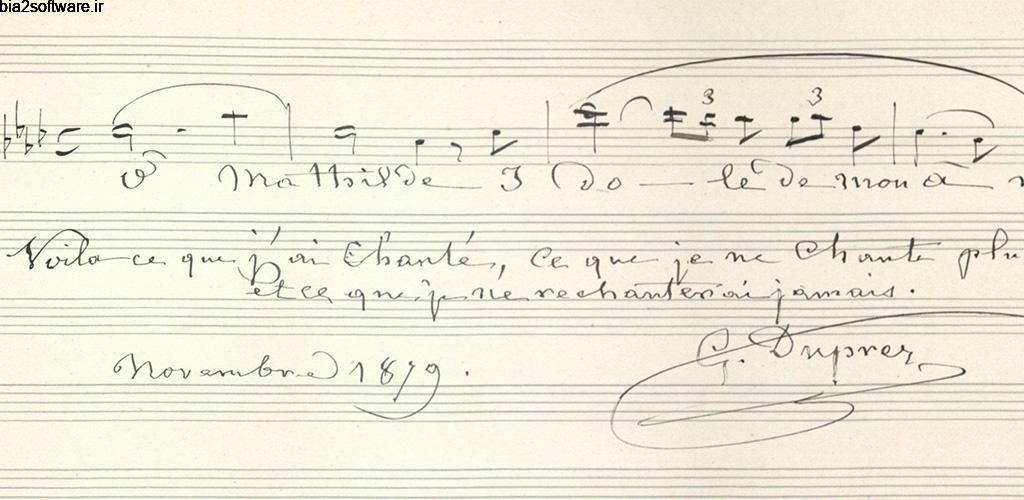 bia2software.ir
3 3
O Mathilde I do — le de mon â
Voila ce que j'ai Chanté, ce que je ne Chante plu
et ce que je ne rechanterai jamais.
Novembre 1879. G. Duprez